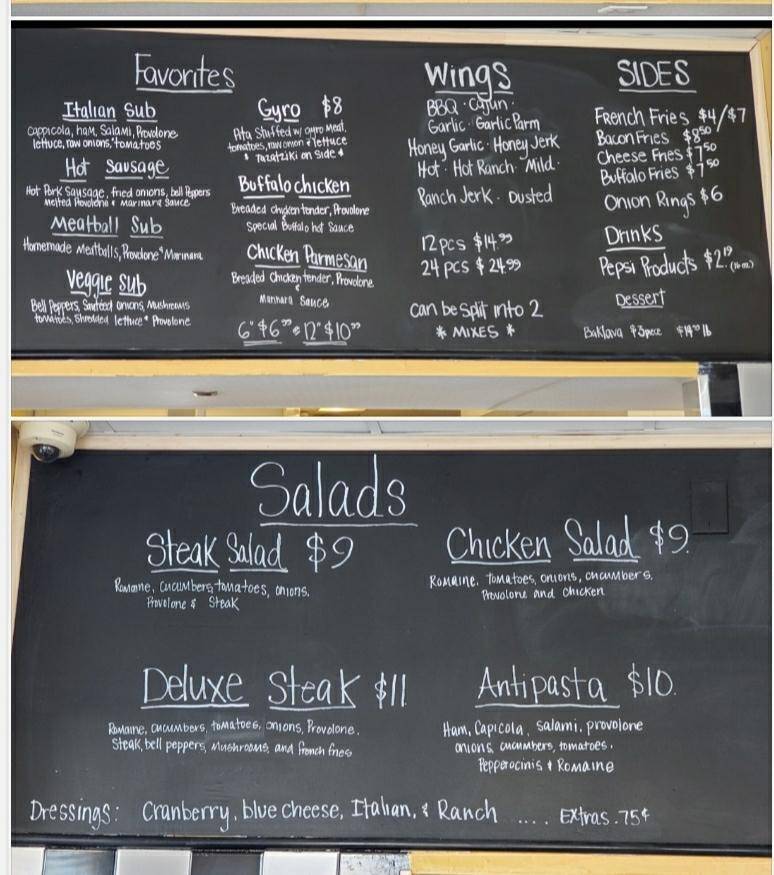 Favorites
Italian Sub
Cappicola, ham, Salami, Provolone
lettuce, raw onions, tomatoes
Hot Sausage
Hot Pork Sausage, fried onions, bell Peppers
melted Provolone & Marinara Sauce
Meatball Sub
Homemade Meatballs, Provolone & Marinara
Veggie Sub
Bell Peppers, Sauteed onions, Mushrooms
tomatoes, Shredded lettuce & Provolone
Gyro $8
Pita Stuffed w/ gyro Meat,
tomatoes, raw onion & lettuce
& Tazatziki on Side
Buffalo chicken
Breaded chicken tender, Provolone
Special Buffalo hot Sauce
Chicken Parmesan
Breaded Chicken tender, Provolone
Marinara Sauce
6" $6 12" $10
Wings
BBQ · Cajun ·
Garlic · Garlic Parm
Honey Garlic · Honey Jerk
Hot · Hot Ranch · Mild ·
Ranch Jerk · Dusted
12 pcs $14.99
24 pcs $24.99
can be split into 2
* MIXES *
SIDES
French Fries $4/$7
Bacon Fries $8.50
Cheese Fries $7.50
Buffalo Fries $7.50
Onion Rings $6
Drinks
Pepsi Products $2.19
Dessert
Baklava $3 piece lb
Salads
Steak Salad $9
Romaine, Cucumbers, tomatoes, onions,
Provolone & Steak
Chicken Salad $9.
Romaine, Tomatoes, onions, cucumbers,
Provolone and Chicken
Deluxe Steak $11
Romaine, cucumbers, tomatoes, onions, Provolone,
Steak, bell peppers, Mushrooms, and french fries
Antipasta $10.
Ham, Capicola, Salami, provolone
onions, cucumbers, tomatoes,
Pepperocinis & Romaine
Dressings: Cranberry, blue cheese, Italian, & Ranch ..... Extras .75¢